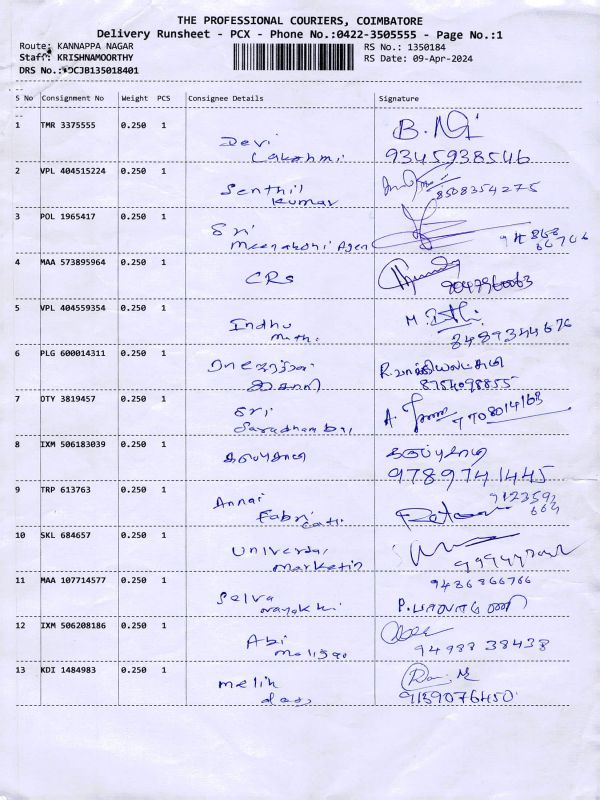 THE PROFESSIONAL COURIERS, COIMBATORE
Delivery Runsheet - PCX - Phone No.:0422-3505555 - Page No.:1
Route: KANNAPPA NAGAR RS No.: 1350184
Staff: KRISHNAMOORTHY RS Date: 09-Apr-2024
DRS No.: DCJB135018401
S No Consignment No Weight PCS Consignee Details Signature
1 TMR 3375555 0.250 1 B.
Devi
Lakshmi 9345938546
2 VPL 404515224 0.250 1
Senthil 8508354275
Kumar
3 POL 1965417 0.250 1
Sri
Meenakshi Agen
4 MAA 573895964 0.250 1
CRS
5 VPL 404559354 0.250 1 M.
Indhu
Mathi 8489344676
6 PLG 600014311 0.250 1
8754098855
7 DTY 3819457 0.250 1 A.
Sri 7708014163
8 IXM 506183039 0.250 1
கருப்புசாமி கருப்புசாமி
9789741445
9 TRP 613763 0.250 1
Annai
Fabri
10 SKL 684657 0.250 1
Universal
Marketin
11 MAA 107714577 0.250 1 9486866766
Selva
nayaki P.
12 IXM 506208186 0.250 1
Abi 9498838438
13 KDI 1484983 0.250 1
melin
dass 9139076450